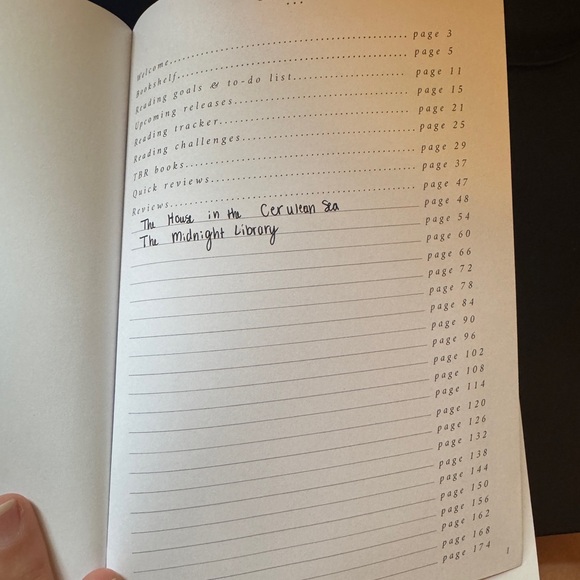 Welcome........................................ page 3
Bookshelf........................................ page 5
Reading goals & to-do list........................ page 11
Upcoming releases................................ page 15
Reading tracker.................................. page 21
Reading challenges............................... page 25
TBR books........................................ page 29
Quick reviews.................................... page 37
Reviews.......................................... page 47
The House in the Cerulean Sea page 48
The Midnight Library page 54
page 60
page 66
page 72
page 78
page 84
page 90
page 96
page 102
page 108
page 114
page 120
page 126
page 132
page 138
page 144
page 150
page 156
page 162
page 168
page 174
1